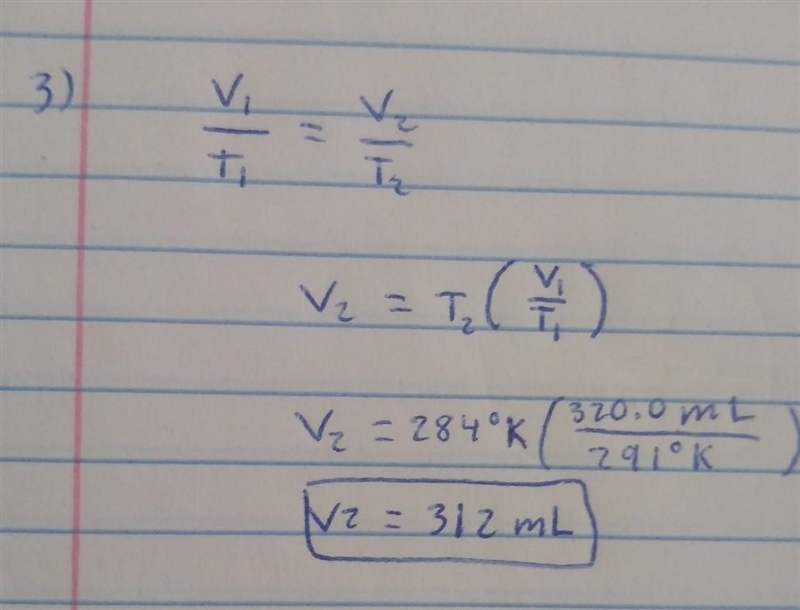 3) V₁/T₁ = V₂/T₂
V₂ = T₂(V₁/T₁)
V₂ = 284°K(320.0 mL/291°K)
V2 = 312 mL